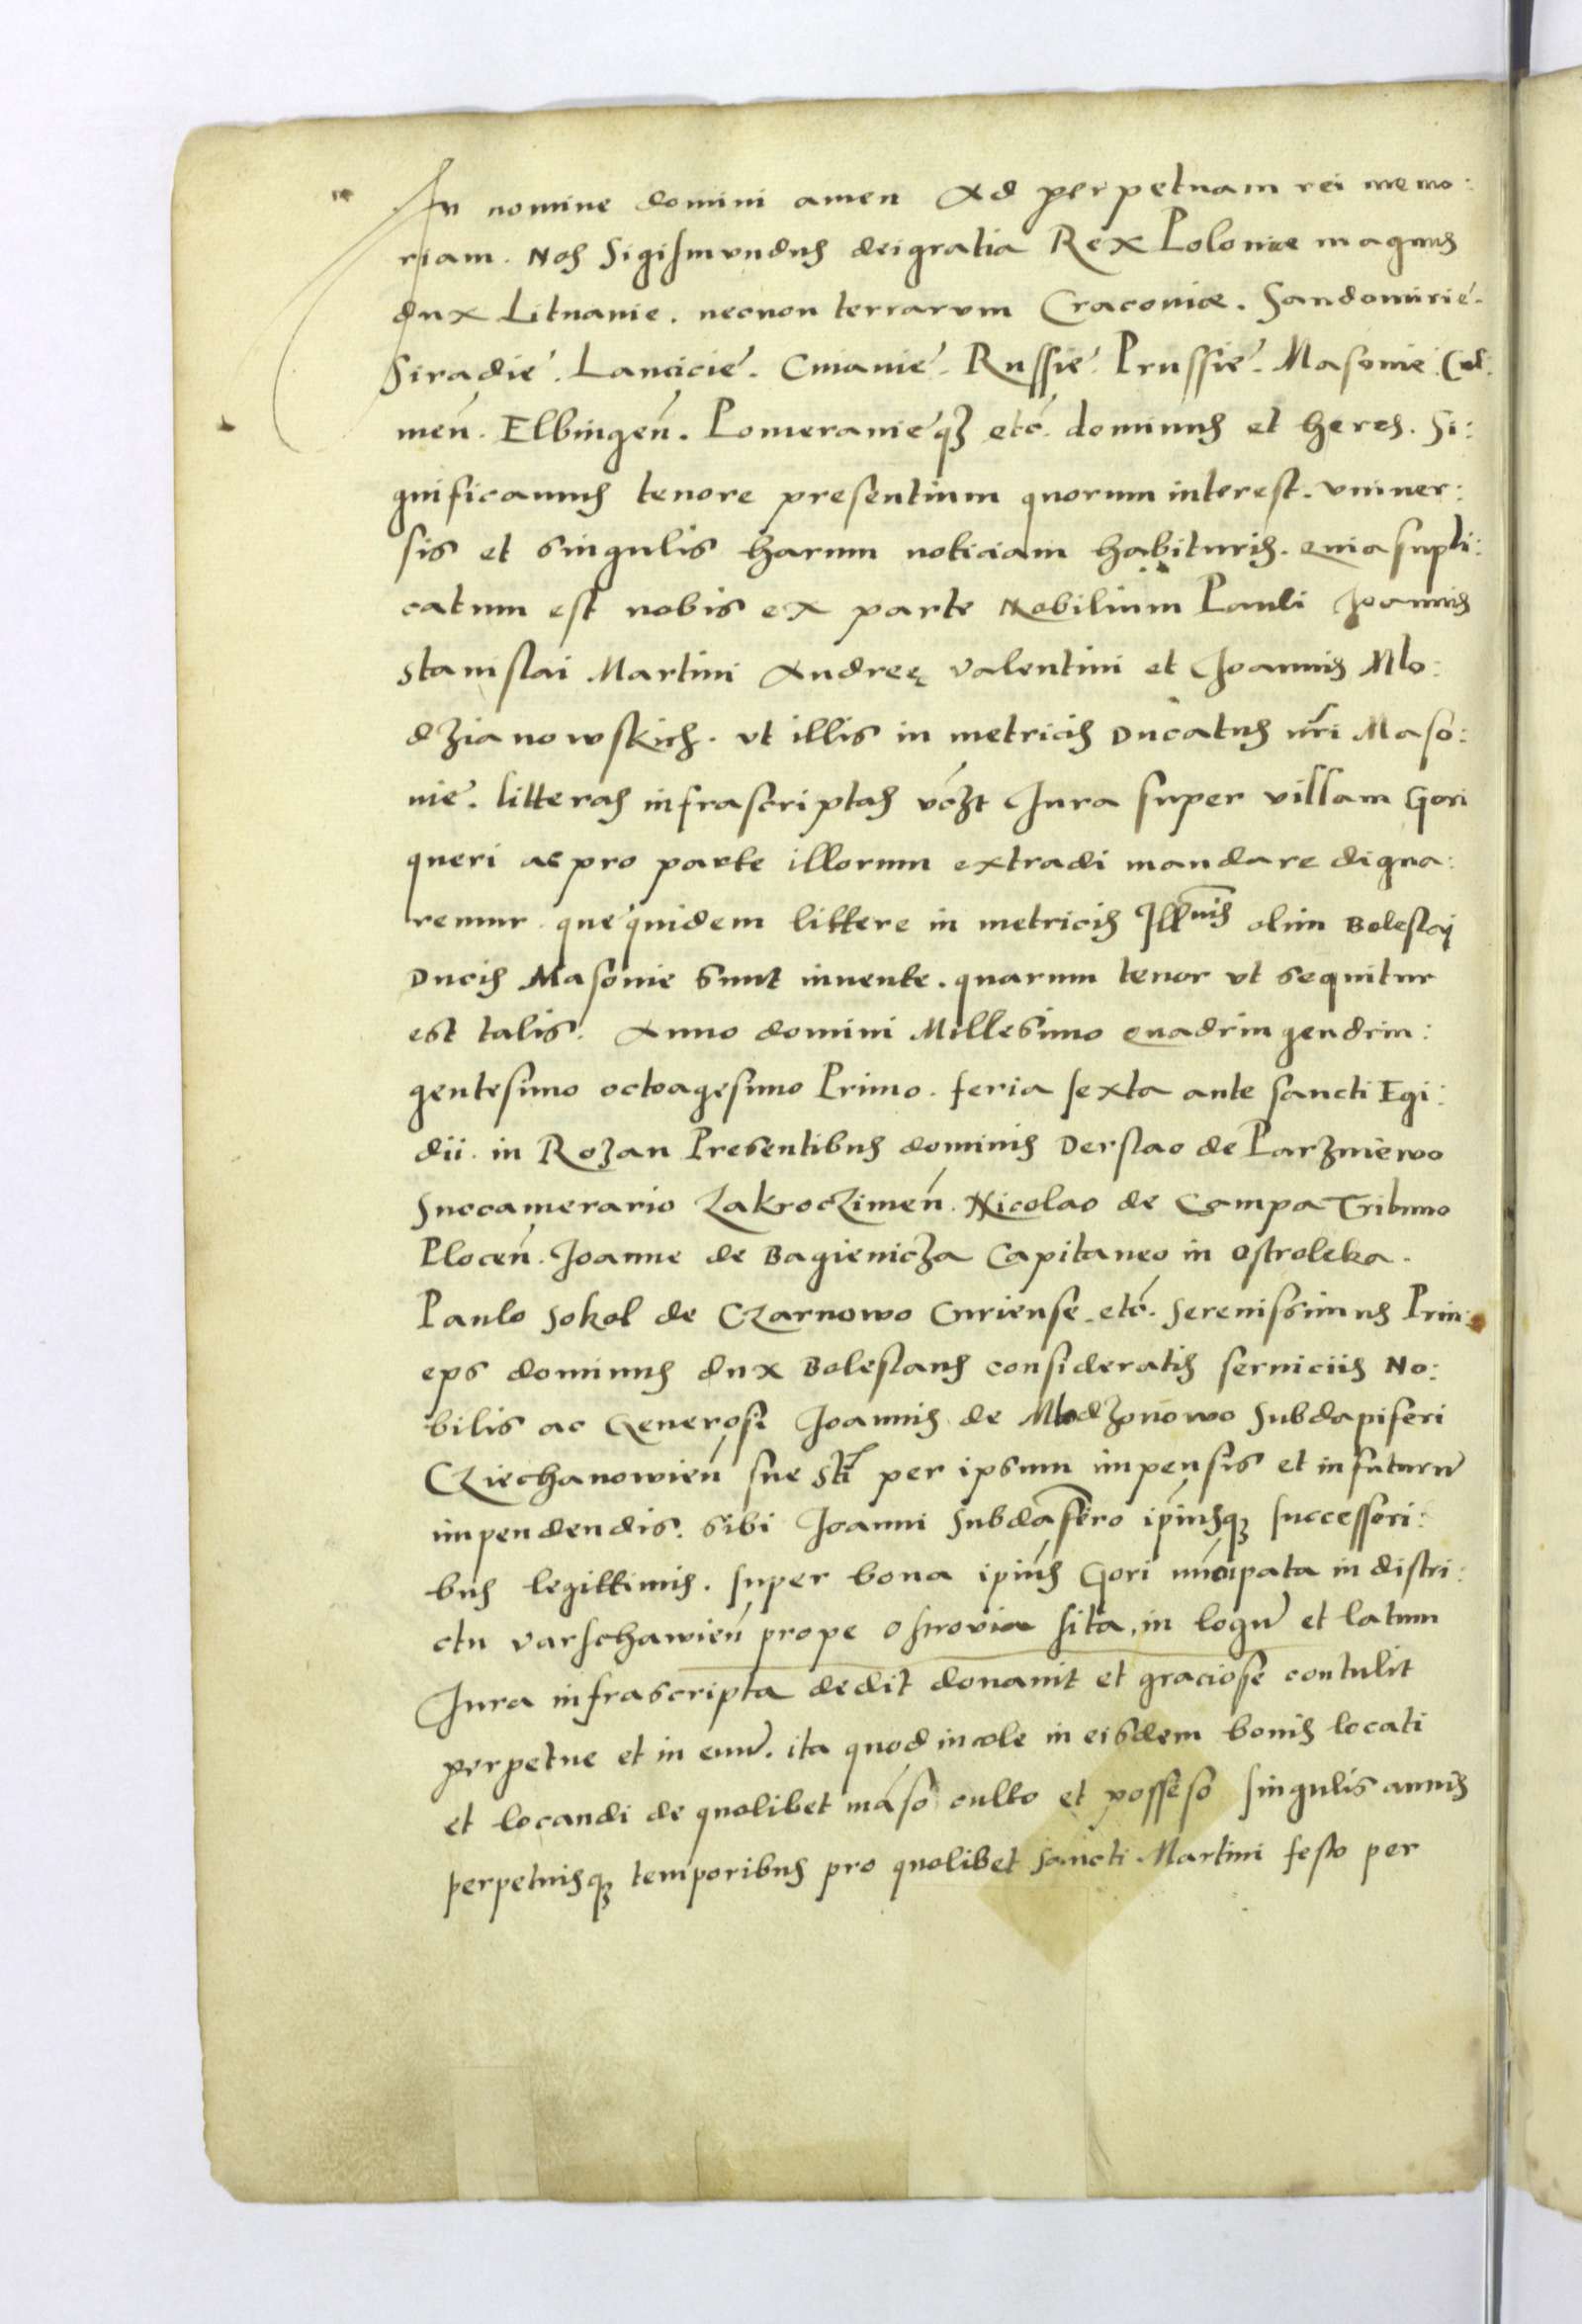 In nomine domini amen Ad perpetuam rei memo:
riam. Nos Sigismundus dei gratia Rex Poloniæ magnus
dux Lituanie. necnon terrarum Cracoviæ. Sandomirie.
Siradie. Lancicie. Cuiavie. Russie. Prussie. Masovie. Cul:
meñ. Elbingeñ. Pomeranieqȝ etc. dominus et heres. Si:
gnificamus tenore presentium quorum interest. univer:
sis et singulis harum noticiam habituris. Quia supli:
catum est nobis ex parte Nobilium Pauli Joannis
Stanislai Martini Andreę Valentini et Joannis Mlo:
dzianowskich. ut illis in metricis Ducatus nri Maso:
vie. litteras infrascriptas vczt Jura super villam Gori
queri ac pro parte illorum extradi mandare digna:
remur. que quidem littere in metricis Illmis olim Boleslai
Ducis Masovie sunt invente. quarum tenor ut sequitur
est talis. Anno domini Millesimo quadringendrin:
gentesimo octoagesimo Primo. feria sexta ante sancti Egi:
dii. in Rozan Presentibus dominis Derslao de Parzniewo
Succamerario Zakroczimeñ. Nicolao de Campa Tribuno
Ploceñ. Joanne de Bagienicza Capitaneo in Ostroleka.
Paulo Sokol de Czarnowo Curiense. etc. Serenissimus Prin:
eps dominus dux Boleslaus consideratis serviciis No:
bilis ac Generosi Joannis de Mlodzonowo Subdapiferi
Cziechanowieñ sue Sti per ipsum impensis et in futurum
impendendis. sibi Joanni Subdafero ipiusqȝ successori:
bus legittimis. super bona ipius Gori nuncupata in distri:
ctu Varschawieñ prope Ostrovia sita, in logum et latum
Jura infrascripta dedit donavit et graciose contulit
perpetue et in evum. ita quod incole in eisdem bonis locati
et locandi de quolibet māso culto et possesso singulis annis
perpetuisqȝ temporibus pro quolibet sancti Martini festo per